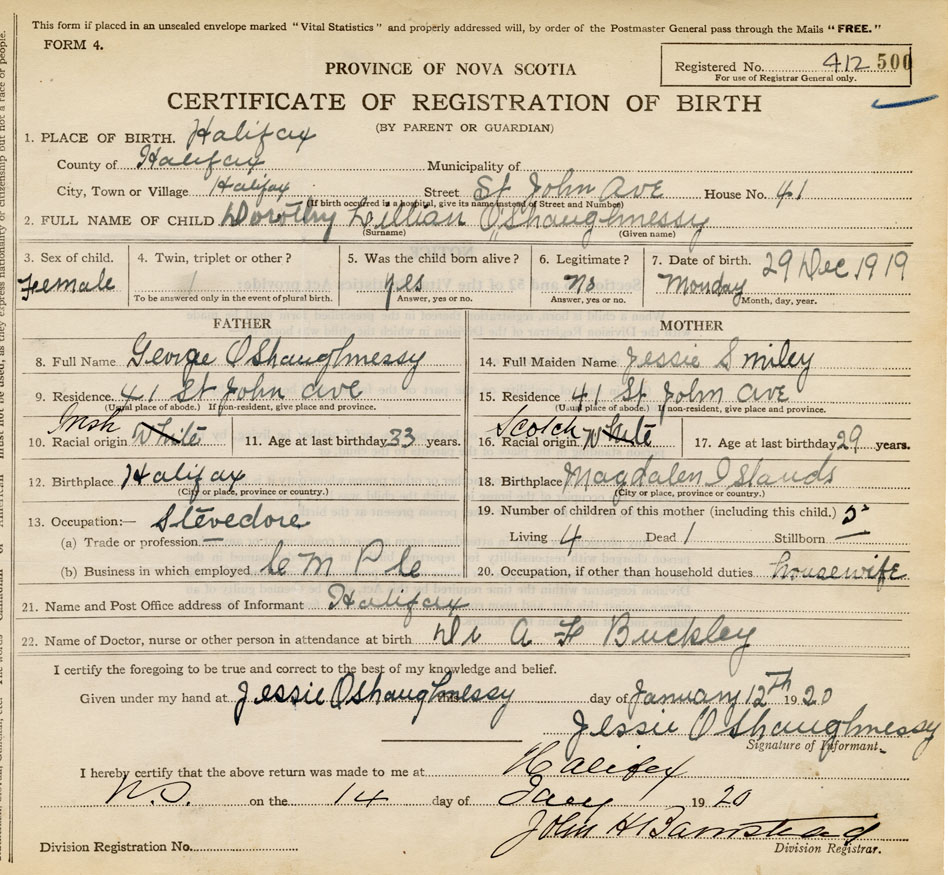 This form if placed in an unsealed envelope marked "Vital Statistics" and properly addressed will, by order of the Postmaster General pass through the Mails "FREE."
FORM 4.
Registered No. 412 500
For use of Registrar General only.
PROVINCE OF NOVA SCOTIA
CERTIFICATE OF REGISTRATION OF BIRTH
(BY PARENT OR GUARDIAN)
1. PLACE OF BIRTH. Halifax
County of Halifax Municipality of
City, Town or Village Halifax Street St John Ave House No. 41
(If birth occurred in a hospital, give its name instead of Street and Number)
2. FULL NAME OF CHILD Dorothy Lillian O'Shaughnessy
(Surname) (Given name)
3. Sex of child. 4. Twin, triplet or other? 5. Was the child born alive? 6. Legitimate? 7. Date of birth. 29 Dec 1919
Female yes no Monday
To be answered only in the event of plural birth. Answer, yes or no. Answer, yes or no. Month, day, year.
FATHER MOTHER
8. Full Name George O'Shaughnessy 14. Full Maiden Name Jessie Smiley
9. Residence 41 St John Ave 15. Residence 41 St John Ave
(Usual place of abode.) If non-resident, give place and province. (Usual place of abode.) If non-resident, give place and province.
Irish Scotch
10. Racial origin White 11. Age at last birthday 33 years. 16. Racial origin White 17. Age at last birthday 29 years.
12. Birthplace Halifax 18. Birthplace Magdalen Islands
(City or place, province or country.) (City or place, province or country.)
13. Occupation:— Stevedore 19. Number of children of this mother (including this child.) 5
(a) Trade or profession — Living 4 Dead 1 Stillborn —
(b) Business in which employed 20. Occupation, if other than household duties. housewife
21. Name and Post Office address of Informant Halifax
22. Name of Doctor, nurse or other person in attendance at birth. Dr A F Buckley
I certify the foregoing to be true and correct to the best of my knowledge and belief.
Given under my hand at Jessie O'Shaughnessy this day of January 12th 1920
Jessie O'Shaughnessy
Signature of Informant.
I hereby certify that the above return was made to me at Halifax
N.S. on the 14 day of Jany 1920
John H Barnstead
Division Registration No. Division Registrar.